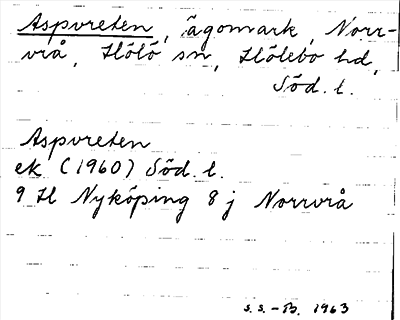 Aspvreten, ägomark, Norr-
vrå, Hölö sn, Hölebo hd,
Söd. l.
Aspvreten
ek (1960) Söd. l.
9 H Nyköping 8 j Norrvrå
S.S.-B. 1963